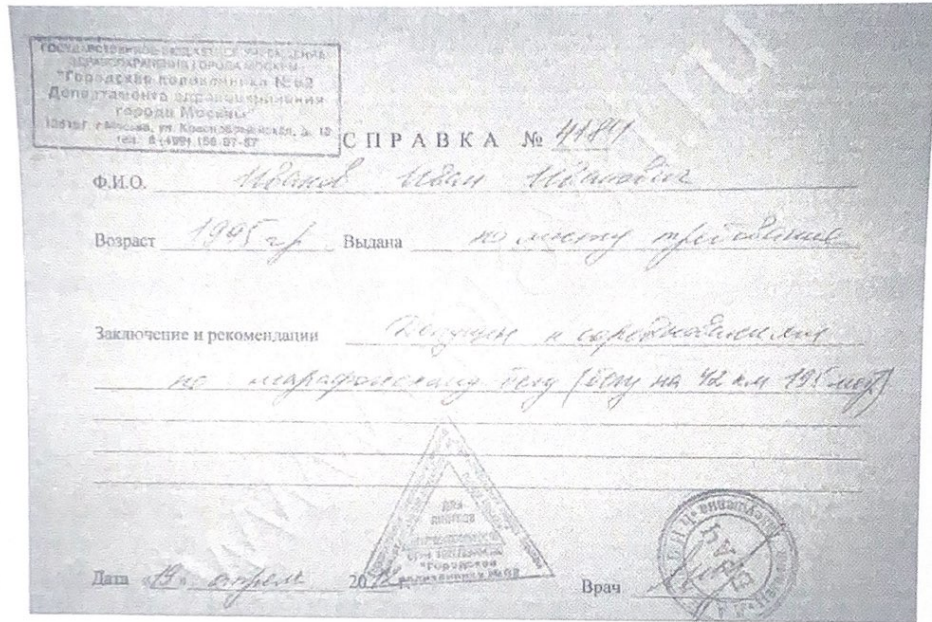 ГОСУДАРСТВЕННОЕ БЮДЖЕТНОЕ УЧРЕЖДЕНИЕ
ЗДРАВООХРАНЕНИЯ ГОРОДА МОСКВЫ
"Городская поликлиника №62
Департамента здравоохранения
города Москвы"
г. Москва, ул. Красноармейская, д. 18
тел. 8 (499)
СПРАВКА № 4184
Ф.И.О. Иванов Иван Иванович
Возраст 1945 г.р. Выдана по месту требования
Заключение и рекомендации Допущен к соревнованиям
по марафонскому бегу (бегу на 42 км 195 метр)
ДЛЯ
"Городская
поликлиника №62
Дата «13» апреля 20 г.
Врач
ВРАЧ